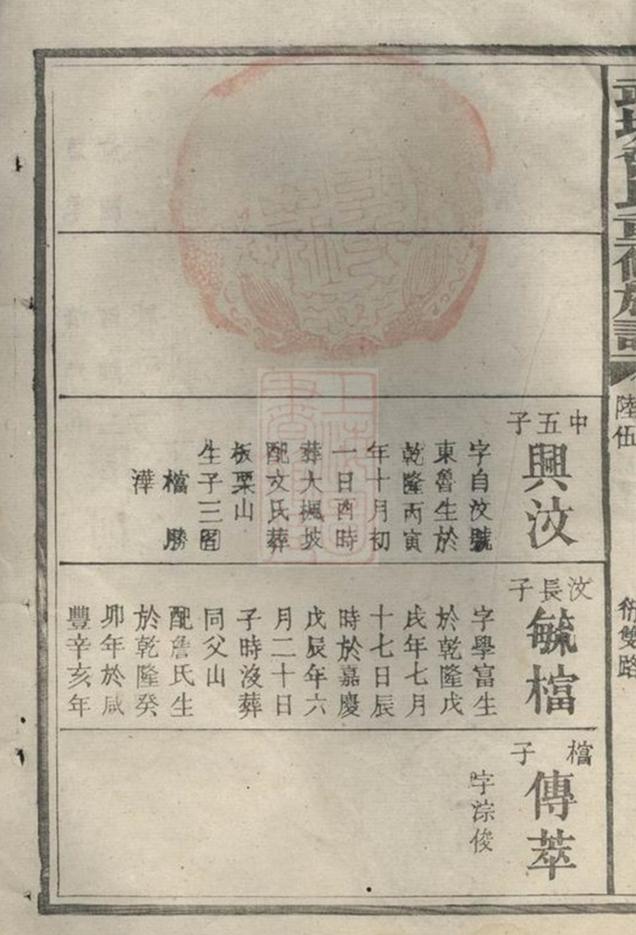 重修族譜
陸伍
衍雙路
中五子
興汶
字自汶號
東魯生於
乾隆丙寅
年十月初
一日酉時
葬大楓坡
配文氏葬
板栗山
生子三
檔 勝
澕
汶長子
毓檔
字學富生
於乾隆戊
戌年七月
十七日辰
時於嘉慶
戊辰年六
月二十日
子時沒葬
同父山
配詹氏生
於乾隆癸
卯年於咸
豐辛亥年
檔子
傳萃
字淙俊